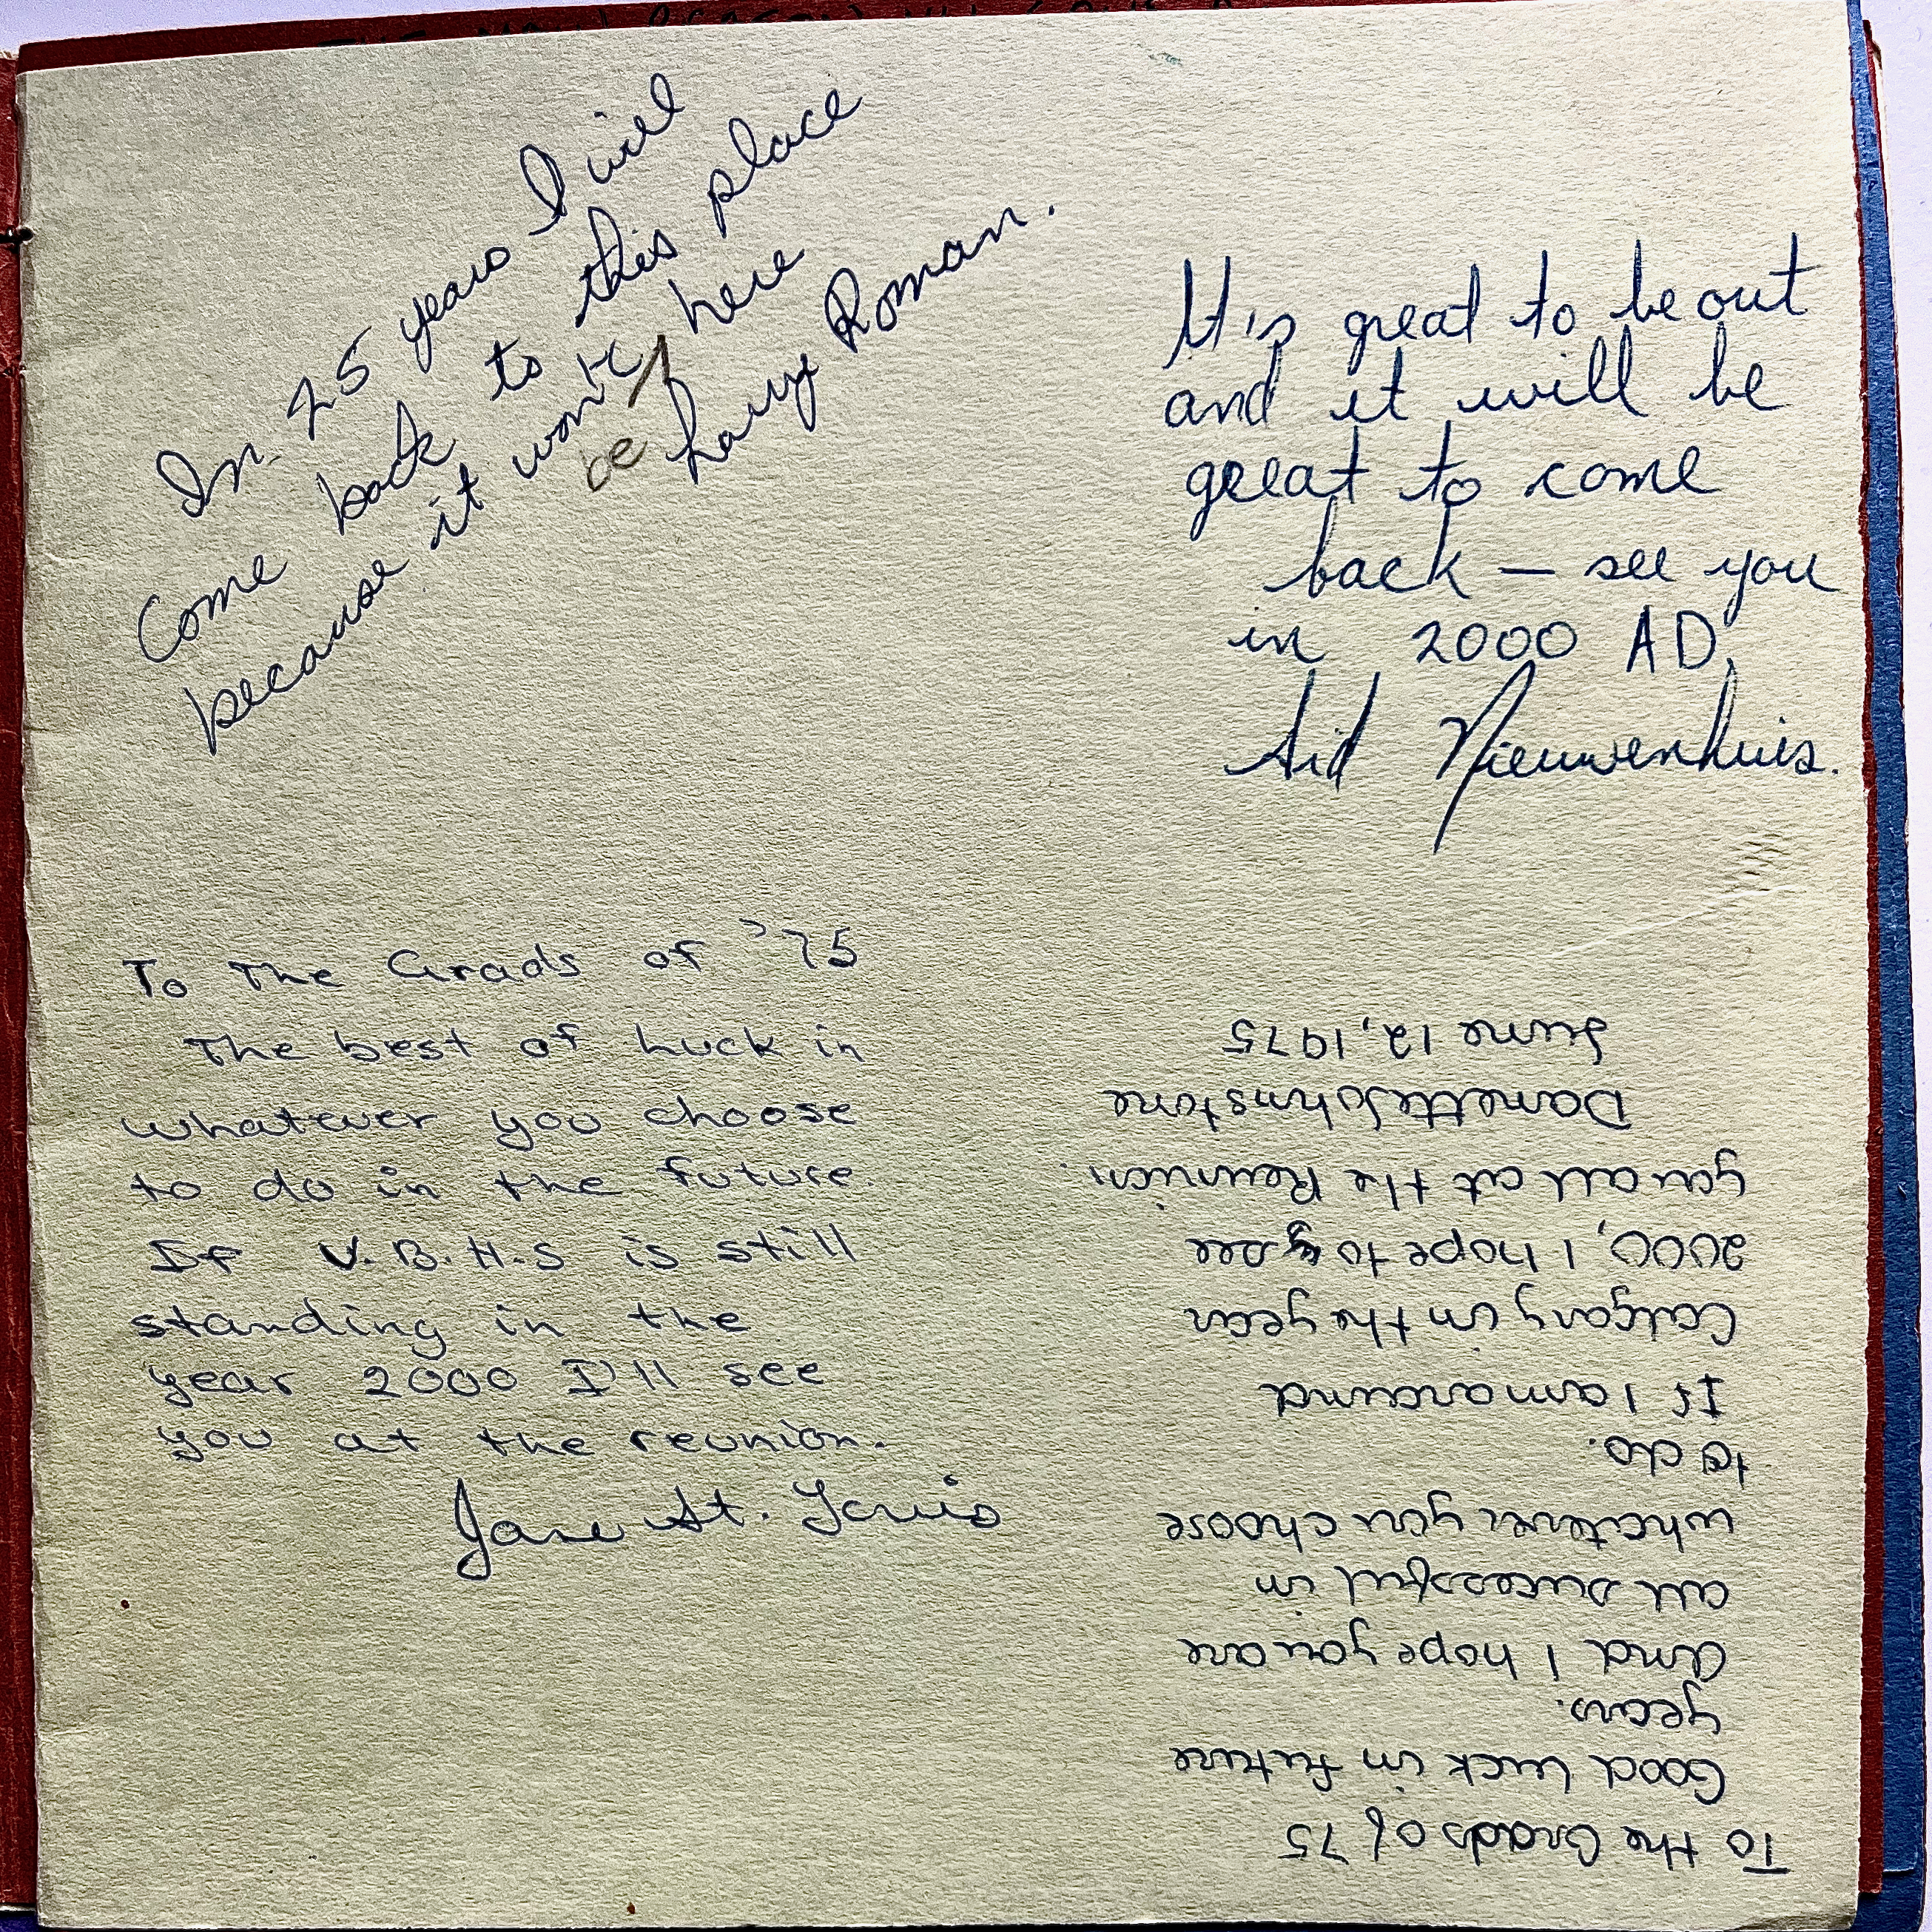 In 25 years I will
Come back to this place
because it won't be here
Larry Roman.
It's great to be out
and it will be
great to come
back — see you
in 2000 AD,
Sid Nieuwenhuis.
To The Grads of '75
The best of Luck in
whatever you choose
to do in the future.
If V.B.H.S is still
standing in the
year 2000 I'll see
you at the reunion.
Jane St. Louis
To the Grads of 75
Good luck in future
years.
And I hope you are
all sucessful in
whatever you choose
to do.
If I am around
Calgary in the year
2000, I hope to see
you all at the Reunion.
Danette Johnstone
June 12, 1975